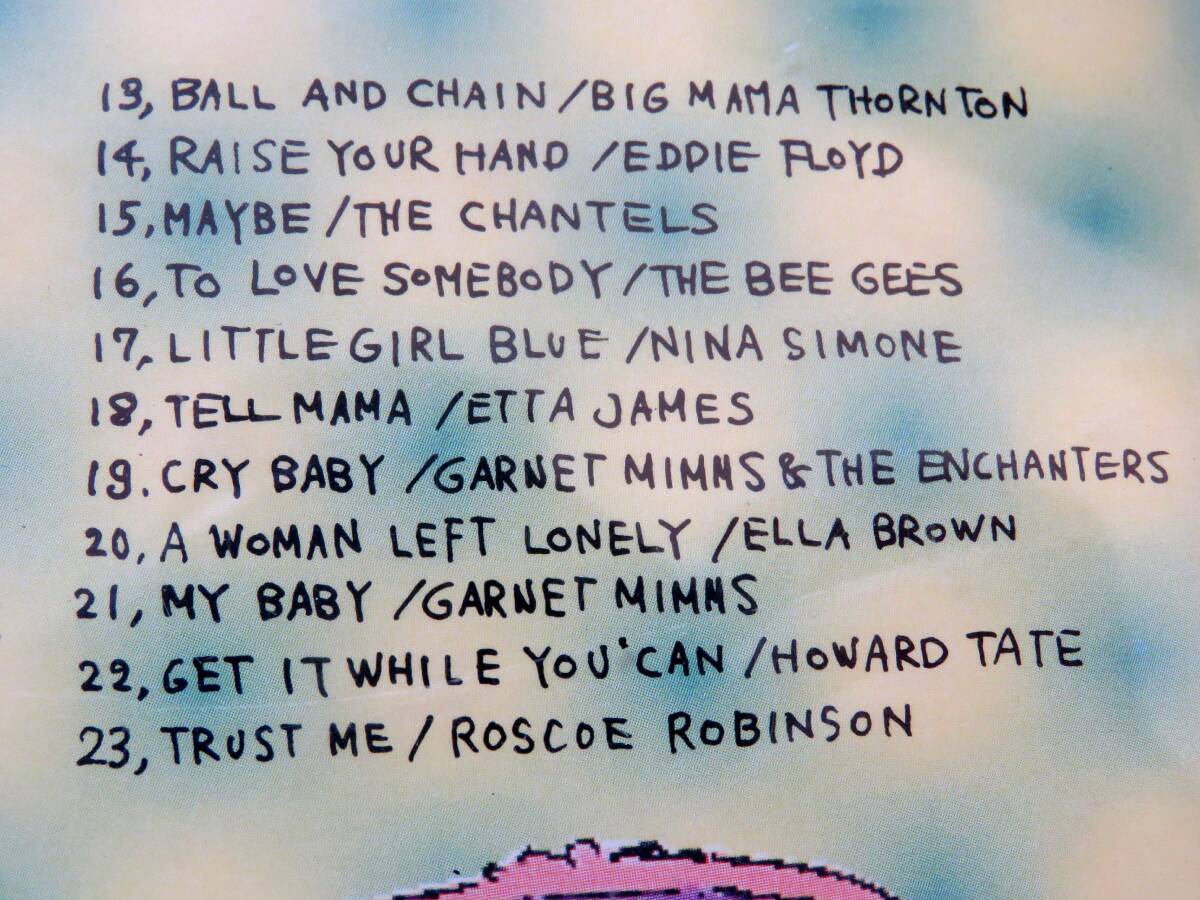 13, BALL AND CHAIN /BIG MAMA THORNTON
14, RAISE YOUR HAND /EDDIE FLOYD
15, MAYBE /THE CHANTELS
16, TO LOVE SOMEBODY /THE BEE GEES
17, LITTLE GIRL BLUE /NINA SIMONE
18, TELL MAMA /ETTA JAMES
19. CRY BABY /GARNET MIMMS & THE ENCHANTERS
20, A WOMAN LEFT LONELY /ELLA BROWN
21, MY BABY /GARNET MIMMS
22, GET IT WHILE YOU CAN /HOWARD TATE
23, TRUST ME / ROSCOE ROBINSON